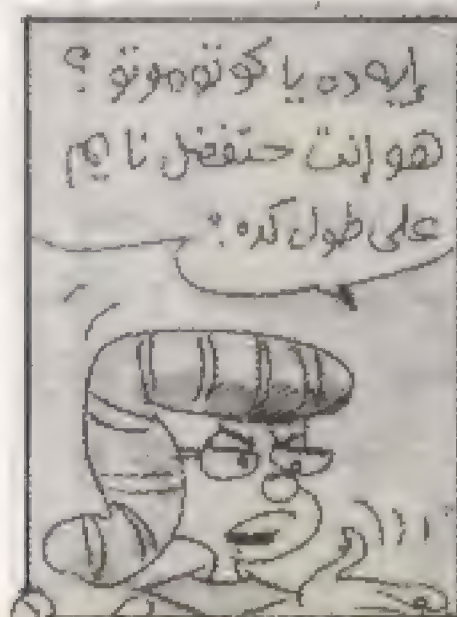 إيه ده يا كوتوموتو ؟
هو إنت حتفضل نايم
على طول كده ؟